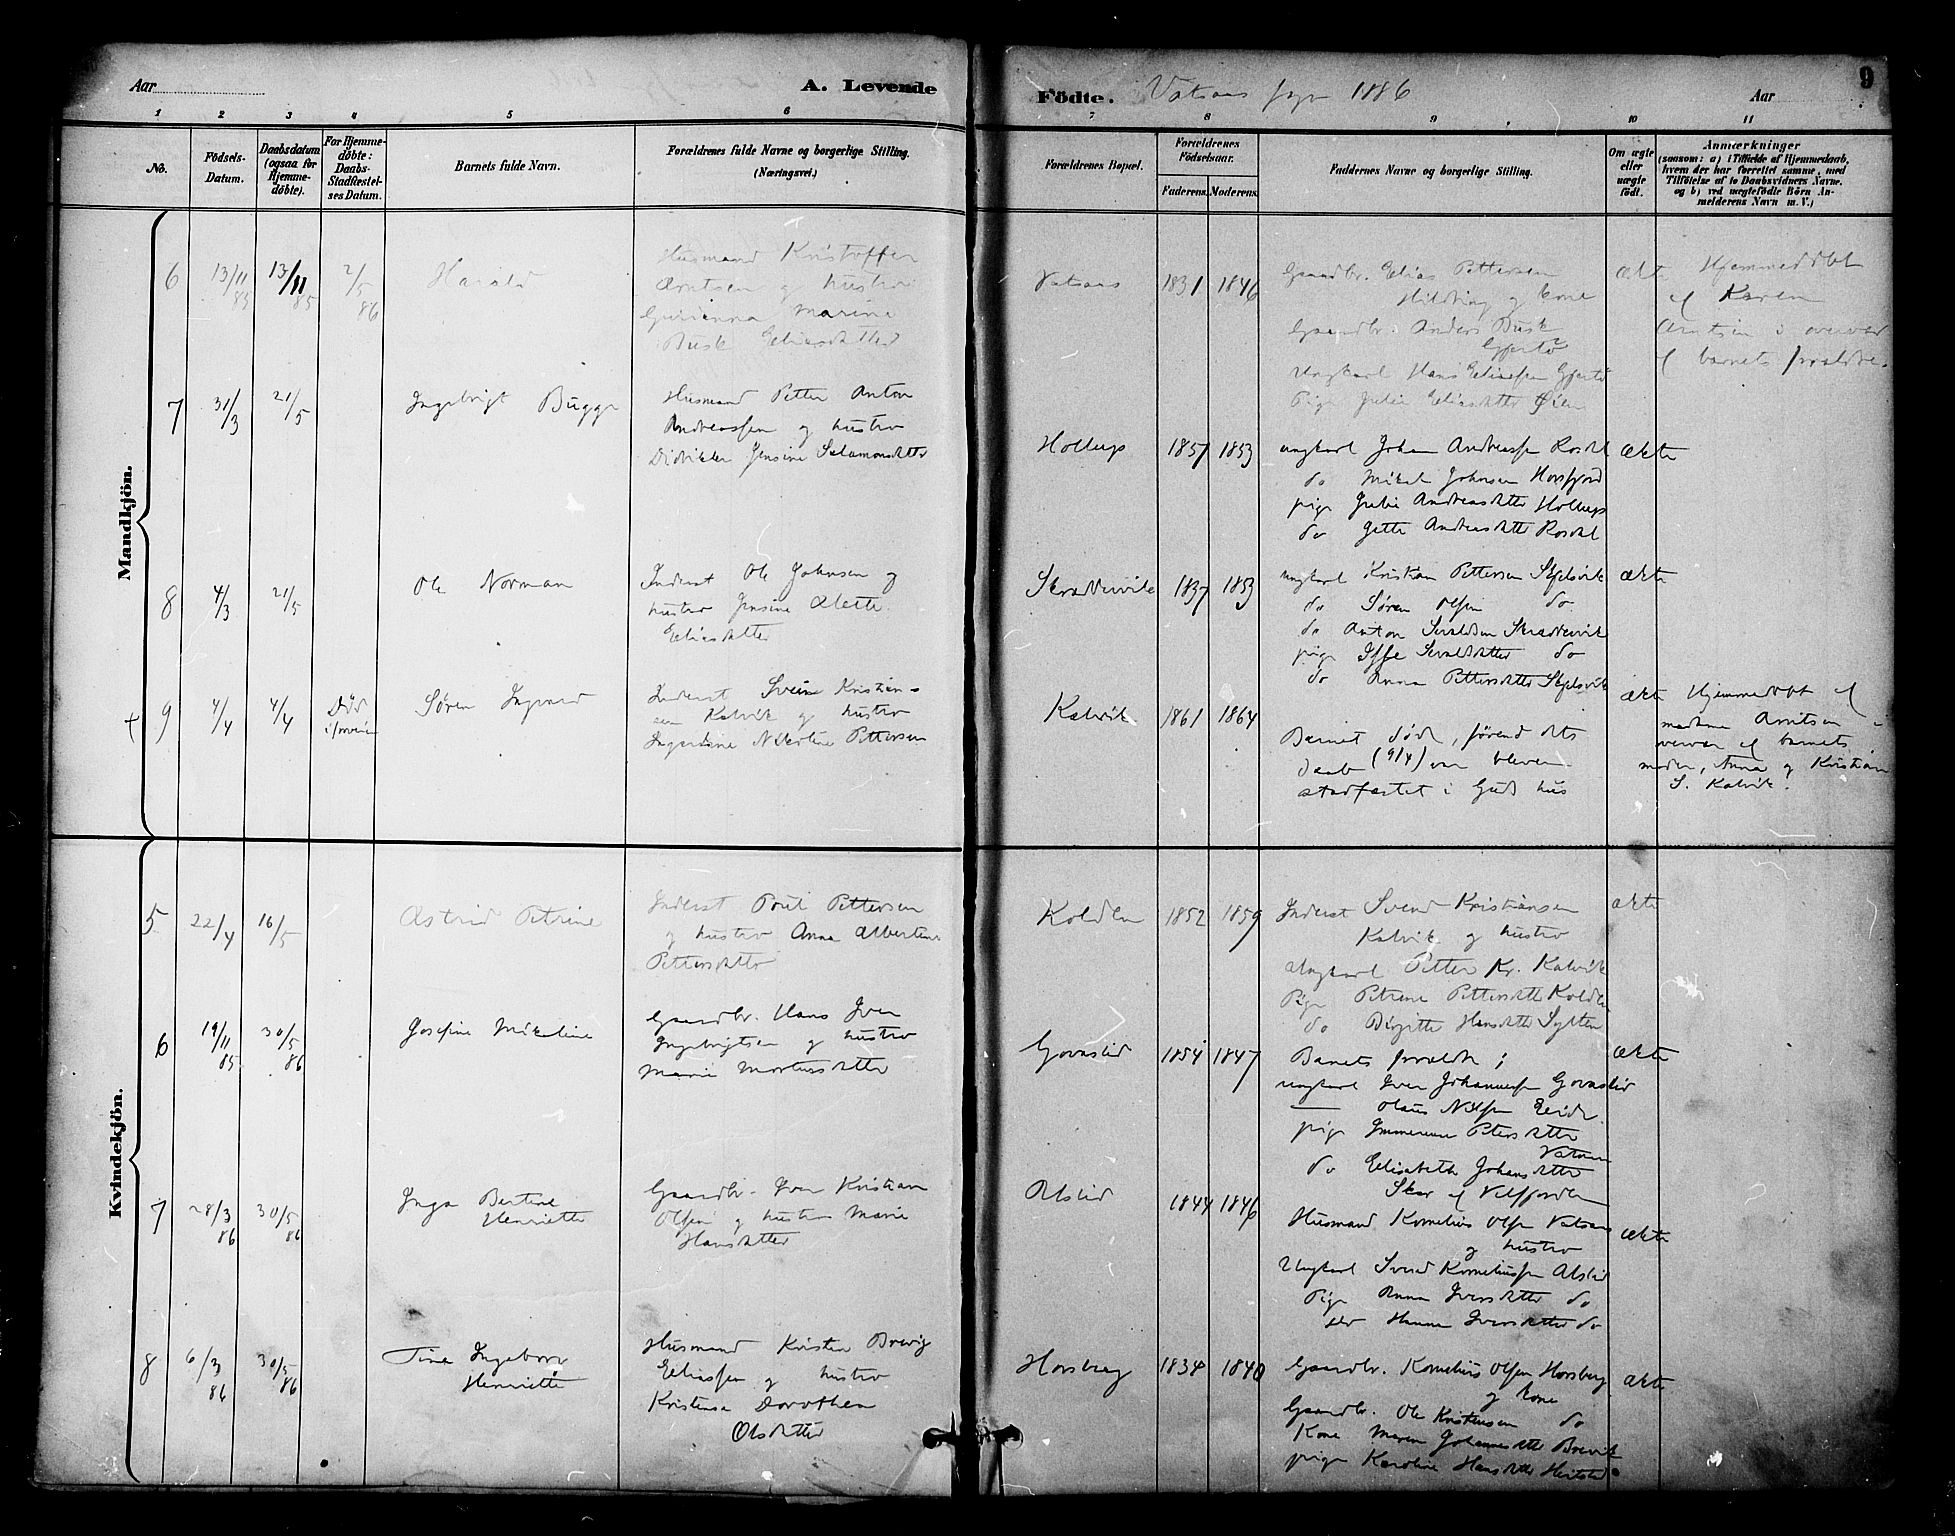 Aar
A. Levende
Födte.
Vatsaas sogn 1886
Aar
9
1 2 3 4 5 6 7 8 9 10 11
No.
Födsels-
Datum.
Daabsdatum
(ogsaa for
Hjemme-
döbte).
For Hjemme-
döbte:
Daabs-
Stadfæstel-
ses Datum.
Barnets fulde Navn.
Forældrenes fulde Navne og borgerlige Stilling.
(Næringsvei.)
Forældrenes Bopæl.
Forældrenes
Födselsaar.
Faderens. Moderens.
Faddernes Navne og borgerlige Stilling.
Om ægte
eller
uægte
födt.
Anmærkninger
(saasom: a) i Tilfælde af Hjemmedaab,
hvem der har forrettet samme, med
Tilföielse af to Daabsvidners Navne.
og b) ved uægtefödte Börn An-
melderens Navn m. V.)
Mandkjön.
6 13/11 85 13/11 85 2/5 86
Harald
Husmand Kristoffer
Arntsen og hustru
Marine
Busk Eliasdatter
Vatsaas 1831 1846
Gaardbr. Elias Pettersen
Hilsting og kone
Gaardbr. Anders Busk
Ungkarl Hans Eliassen
Pige Julie Eliasdatter
ækte
Hjemmedøbt
af Karen
Arntsen i overvær
af barnets forældre.
7 31/3 21/5
Ingebrigt Bugge
Husmand Petter Anton
Andreassen og hustru
Jensine Salamonsdatter
Hollup 1857 1853
ungkarl Johan Andreassen Rosdal
do Mikal Johnsen Horsfjord
pige Julie Andreasdatter Hollup
do Jette Andreasdatter Rosdal
ækte
8 4/3 21/5
Ole Norman
Inderst Ole Johnsen og
hustru Jensine Alette
Eliasdatter
1837 1853
ungkarl Kristian Pettersen
do Søren Olsen do
do Anton
pige do
do Anna Pettersdatter
ækte
9 4/4 4/4 Død
Søren Ingvard
Inderst Svein Kristian-
sen Kalvik og hustru
Nikoline Pettersen
Kalvik 1861 1864
Barnet døde, førend dets
daab (9/4) var bleven
stadfæstet i Guds hus
ækte
Hjemmedøbt af
madame Arntsen i
overvær af barnets
moder, Anna og Kristian
S. Kalvik.
Kvindekjön.
5 22/4 16/5
Astrid Petrine
Inderst Poul Pettersen
og hustru Anna Albertine
Pettersdatter
Kolden 1852 1859
Inderst Svend Kristiansen
Kalvik og hustru
Ungkarl Petter Kr. Kalvik
Pige Petrine Pettersdatter Kolden
do Birgitte Hansdatter Sylten
ækte
6 19/11 85 30/5 86
Josefine Mikaline
Gaardbr. Hans Iver
Ingebrigtsen og hustru
Marie Mortensdatter
Govaslid 1854 1847
Barnets forældre;
ungkarl Iver Johannessen Govaslid
Olaus Nilsen Eide
pige Petersdatter
Vatnan
do Elisabeth Johansdatter
Skar af Velfjorden
ækte
7 28/3 86 30/5 86
Inga Bertine
Henriette
Gaardbr. Iver Kristian
Olsen og hustru Marie
Hansdatter
Alslid 1844 1846
Husmand Kornelius Olsen Vatsaas
og hustru
Ungkarl Svend Korneliussen Alslid
Pige Anna Iversdatter do
do Hanna Iversdatter do
ækte
8 6/3 86 30/5 86
Tina Ingeborg
Henriette
Husmand Kristen Brevig
Eliassen og hustru
Kristense Dorothea
Olsdatter
Horsberg 1834 1840
Gaardbr. Kornelius Olsen Horsberg
og kone
Gaardbr. Ole Kristensen do
Kone Maren Johannesdatter Brevik
pige Karoline Hansdatter
ækte